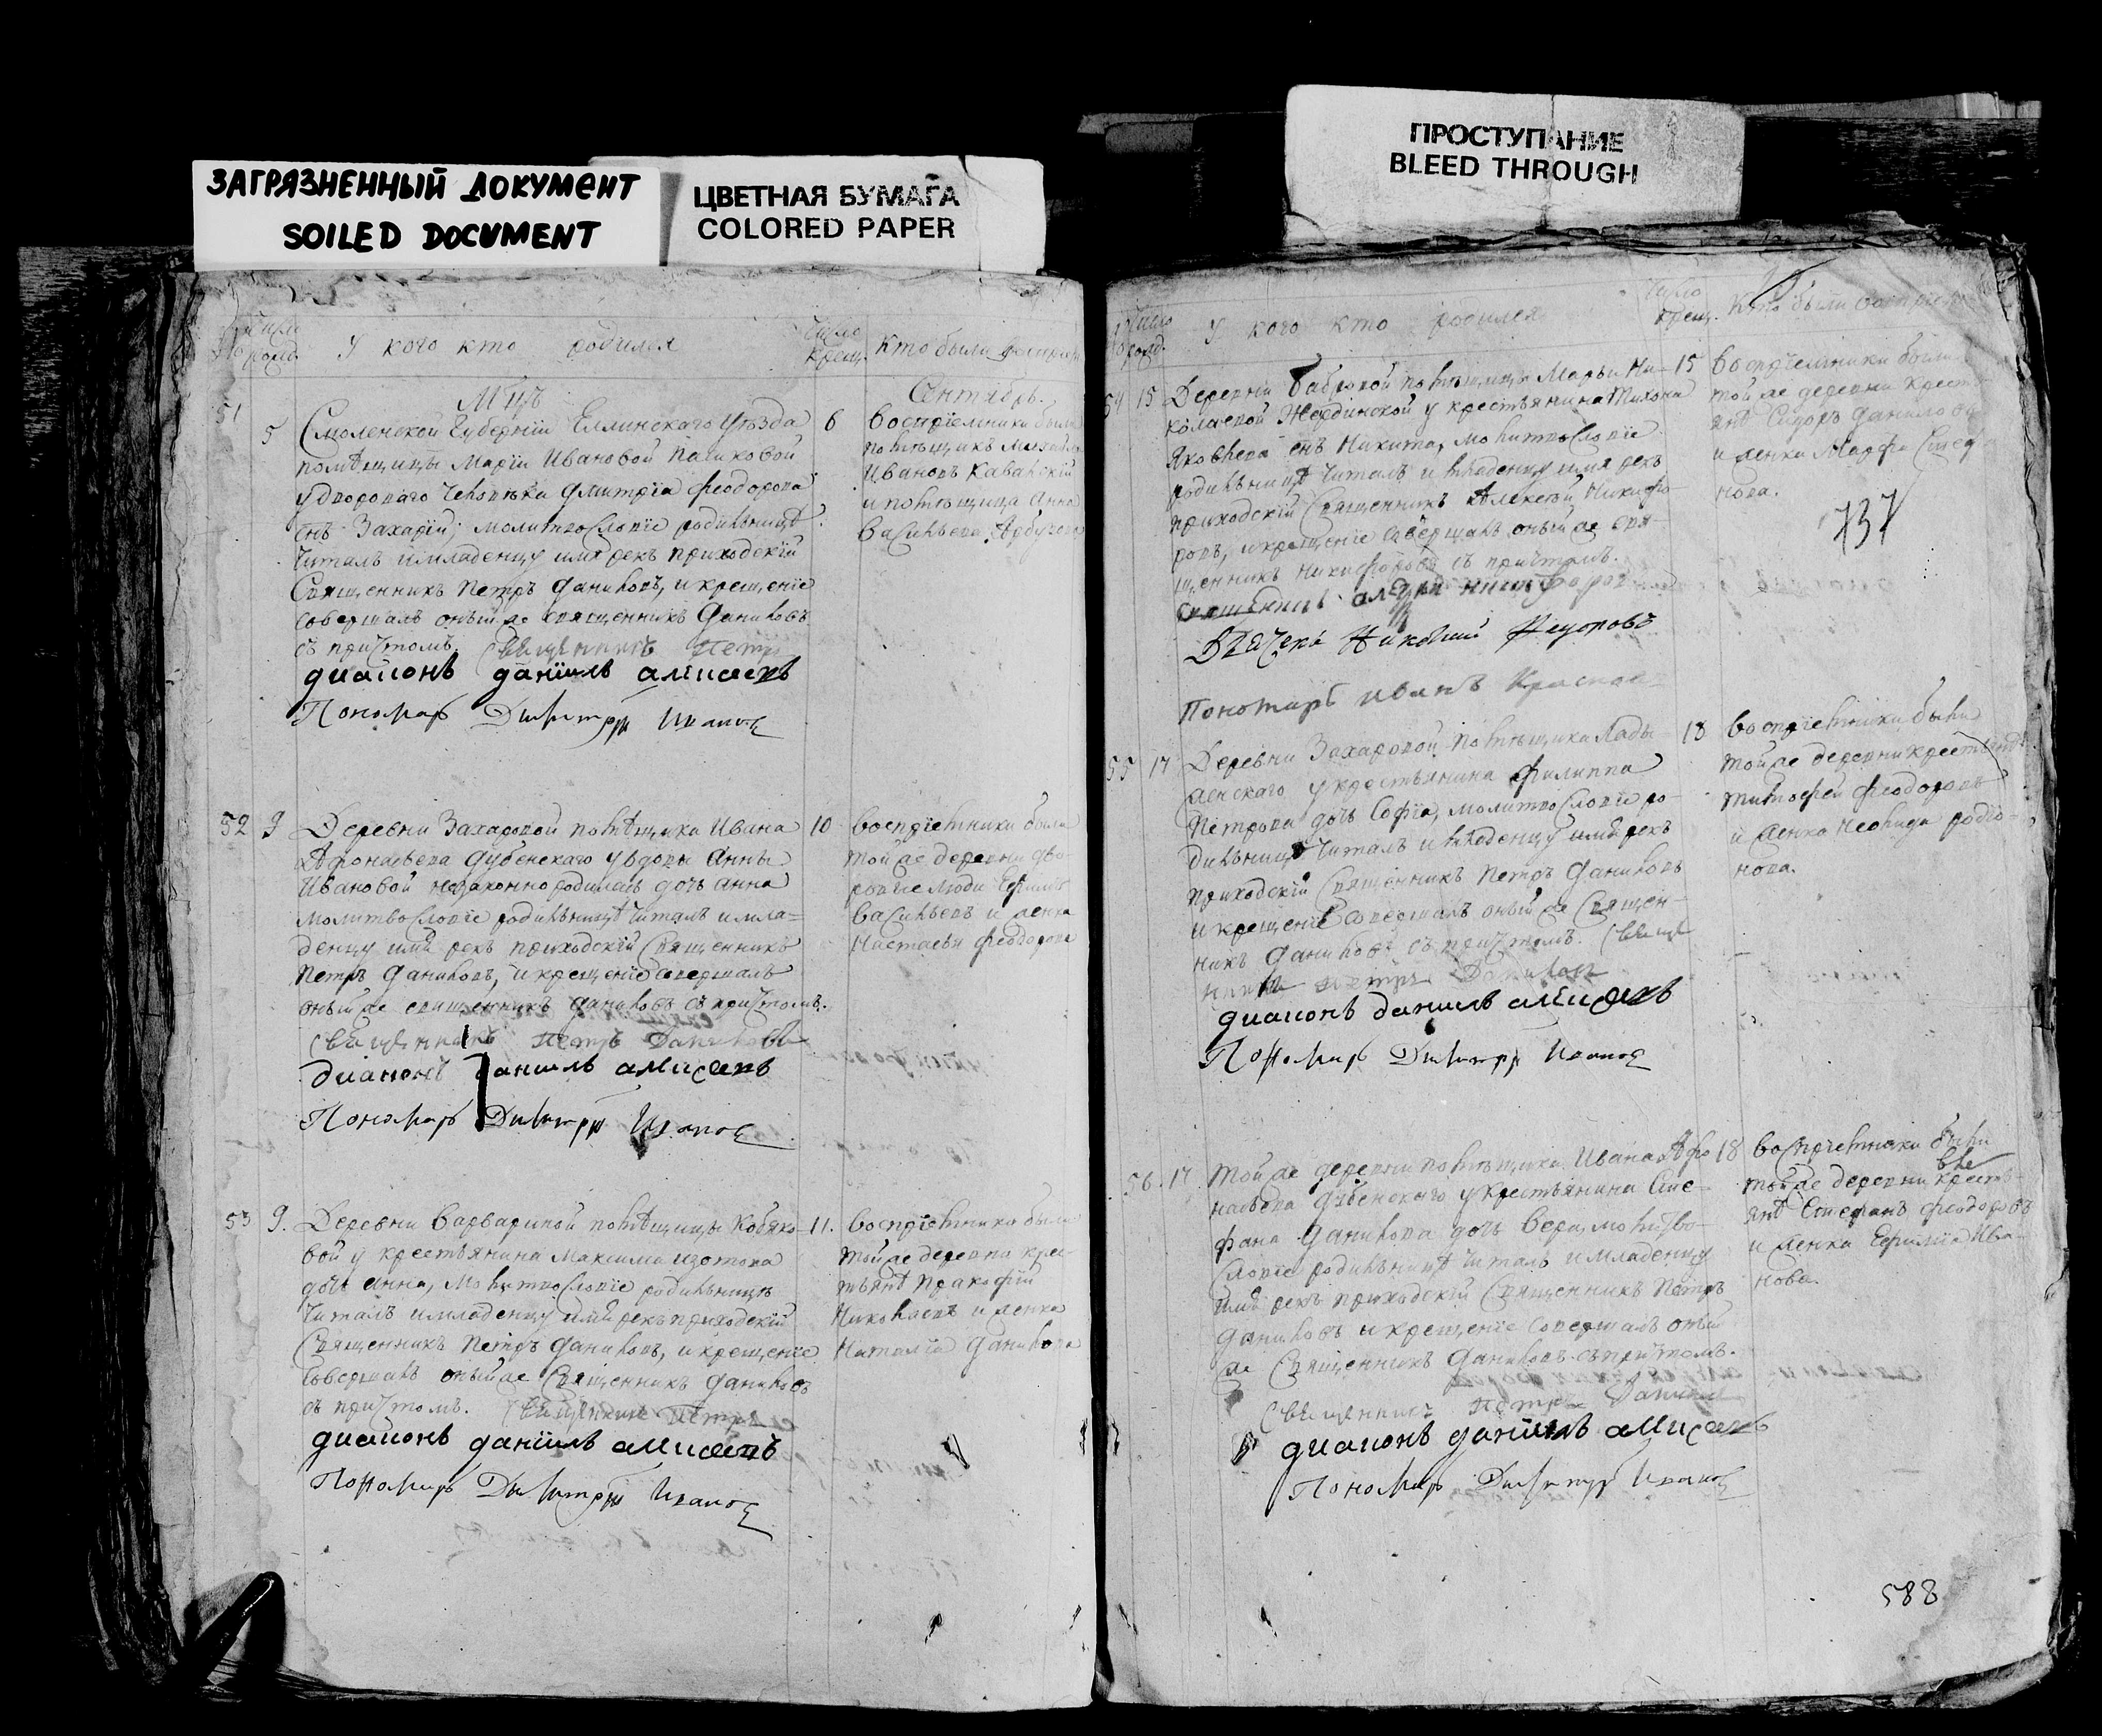 ЗАГРЯЗНЕННЫЙ ДОКУМЕНТ
SOILED DOCUMENT
ЦВЕТНАЯ БУМАГА
COLORED PAPER
ПРОСТУПАНИЕ
BLEED THROUGH
У кого кто родился
Число крещ.
Кто были
Мцъ
Сентябрь.
51
5
Смоленской Губерніи Еллинскаго Уѣзда
6
помѣщицы Маріи Ивановой
у двороваго человѣка Дмитріа Феодорова
снъ Захарій, молитвословіе родильницѣ
читалъ и младенцу имя рекъ приходскій
Священникъ Петръ Даниловъ, и крещеніе
совершалъ оный же священникъ Даниловъ
съ причтомъ. Священникъ Петръ
диаконъ даниилъ алиѯеевъ
Пономарь Димитрій Иванов
воспріемники были
помѣщикъ Михайло
Ивановъ
и помѣщица Анна
Васильева Арбузова
52
9
Деревни Захаровой помѣщика Ивана
10
Афонасьева Дубенскаго у вдовы Анны
Ивановой незаконно родилась дочь анна
молитвословіе родильницѣ читалъ и мла=
денцу имя рекъ приходскій Священникъ
Петръ Даниловъ, и крещеніе совершалъ
оный же священникъ Даниловъ съ причтомъ.
Священникъ Петръ Даниловъ
диаконъ Даниилъ алиѯеевъ
Пономарь Димитрій Иванов
воспріемники были
той же деревни дво-
ровые люди Ефимъ
Васильевъ и женка
Настасья Феодорова
53
9.
Деревни Варвариной помѣщицы Кобяко-
11.
вой у крестьянина Максима изотова
дочь анна, молитвословіе родильницѣ
читалъ и младенцу имя рекъ приходскій
Священникъ Петръ Даниловъ, и крещеніе
совершалъ оный же Священникъ Даниловъ
съ причтомъ. Священникъ Петръ
диаконъ даниилъ алиѯеевъ
Пономарь Димитрій Иванов
воспріемники были
той же деревни крес-
тьянѣ Пракофій
Николаевъ и женка
Наталіа Данилова
У кого кто родился
крещ.
Кто были воспріем
54
15
Деревни Бабровой помѣщицы Марьи Ни-
15
колаевой у крестьянина Тихона
Яковлева снъ Никита, молитвословіе
родильницѣ читалъ и младенцу имя рекъ
приходскій Священникъ Алексѣй Никифо-
ровъ, и крещеніе совершалъ оный же свя-
щенникъ Никифоровъ съ причтомъ.
Дьячекъ Николай Федоровъ
Пономарь иванъ
воспріемники были
той же деревни крест
янѣ Сидоръ Данилов
и женка Марфа
нова.
737
55
17
Деревни Захаровой помѣщика Лады-
18
женскаго у крестьянина Филиппа
Петрова дочь Софіа, молитвословіе ро-
дильницѣ читалъ и младенцу имя рекъ
приходскій Священникъ Петръ Даниловъ
и крещеніе совершалъ оный же Священ-
никъ Даниловъ съ причтомъ. Свяще
никъ Петръ Данилов
диаконъ даниилъ алиѯеевъ
Пономарь Димитрій Иванов
воспріемники были
той же деревни крестьянѣ
Тимофей Феодоровъ
и женка Неонида родіо-
нова.
56.
17
Той же деревни помѣщика Ивана Афо
18
насьева Дубенскаго у крестьянина Сте-
фана Данилова дочь Вера, молитво-
словіе родильницѣ читалъ и младенцу
имя рекъ приходскій Священникъ Петръ
Даниловъ и крещеніе совершалъ оный
же Священникъ Даниловъ съ причтомъ.
Священникъ Петръ Данилов
диаконъ даниилъ алиѯеевъ
Пономарь Димитрій Иванов
воспріемники были
той же деревни кресть-
янѣ Стефанъ Феодоровъ
и женка Ефиміа Ива-
нова.
588